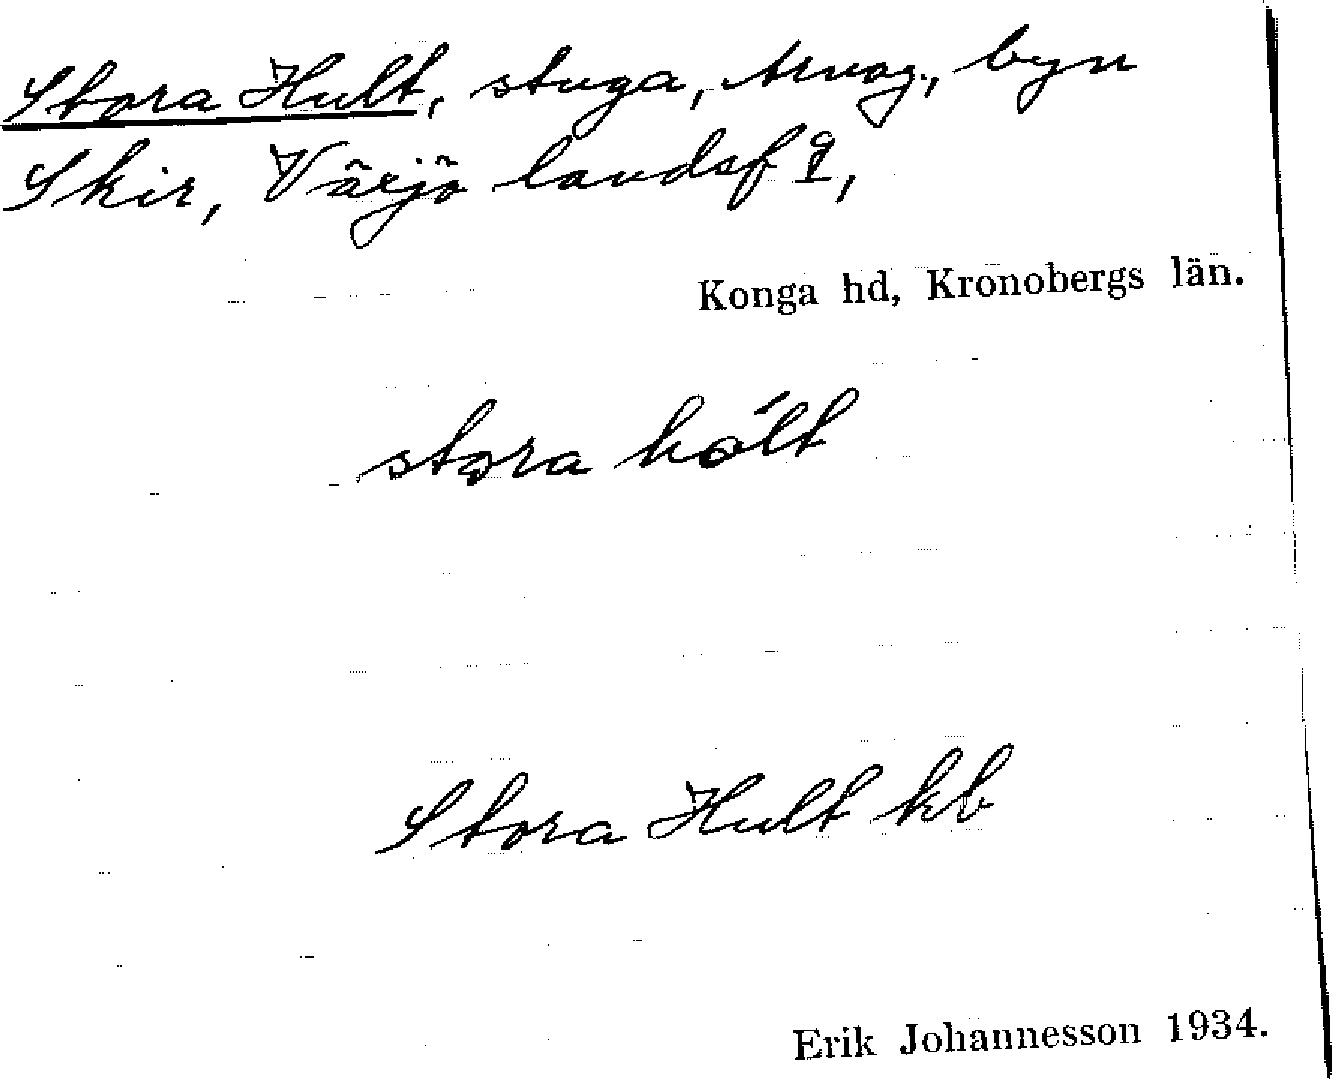 Stora Hult, stuga, Arvag., byn
Skir, Växjö landsf g,
Konga hd, Kronobergs län.
stora hólt
Stora Hult kb
Erik Johannesson 1934.